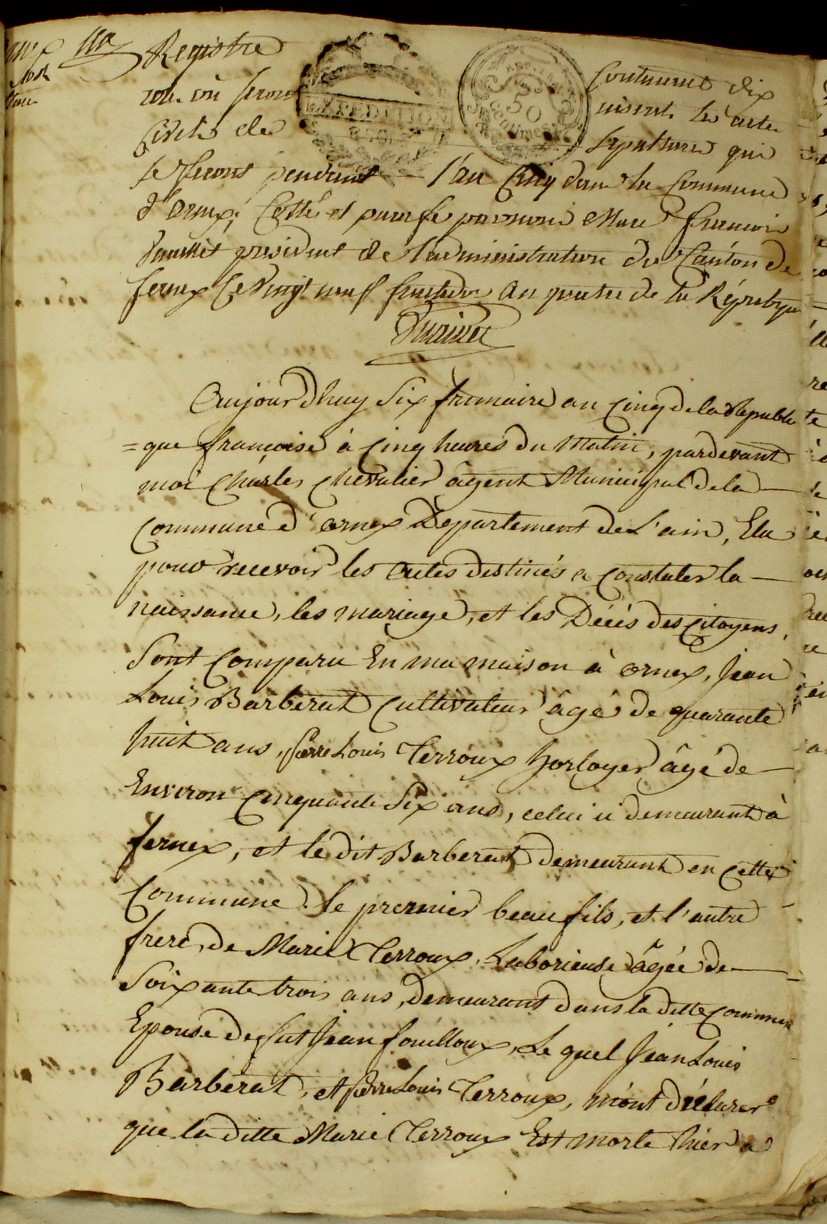 Registre contenant dix
ou seront inscrits les actes
Civils de sepulture qui
se feront pendant l'an Cinq dans la Commune
d'ornex, Cotté et paraphé par moi Marc françois
president de l'administration du Canton de
fernex Ce Vingt neuf fructidor an quatre de la Répubque
EXPEDITION
50
CENTIMES
Aujourd'huy Six frimaire an Cinq de la Republi
=que françoise à Cinq heures du Matin, pardevant
moi Charles Chevalier âgent Municipal de la
Commune d'ornex Departement de L'ain, Elu
pour recevoir les actes destinés a Constater la
naissance, les mariage, et les Décés des Citoyens,
Sont Comparu En ma maison à ornex, Jean
Louis Barberat Cultivateur âgé de quarante
huit ans, pierre Louis Terroux horloger âgé de
Environ Cinquante Six ans, celui ci demeurant à
fernex, et le dit Barberat demeurant en cette
Commune le premier beau fils, et l'autre
frere, de Marie Terroux, Laborieuse âgée de
Soixante trois ans, demeurant dans la ditte Commune
Epouse de fut Jean fouilloux, Le quel Jean Louis
Barberat, et pierre Louis Terroux, m'ont déclarer
que la ditte Marie Terroux Est morte hier a